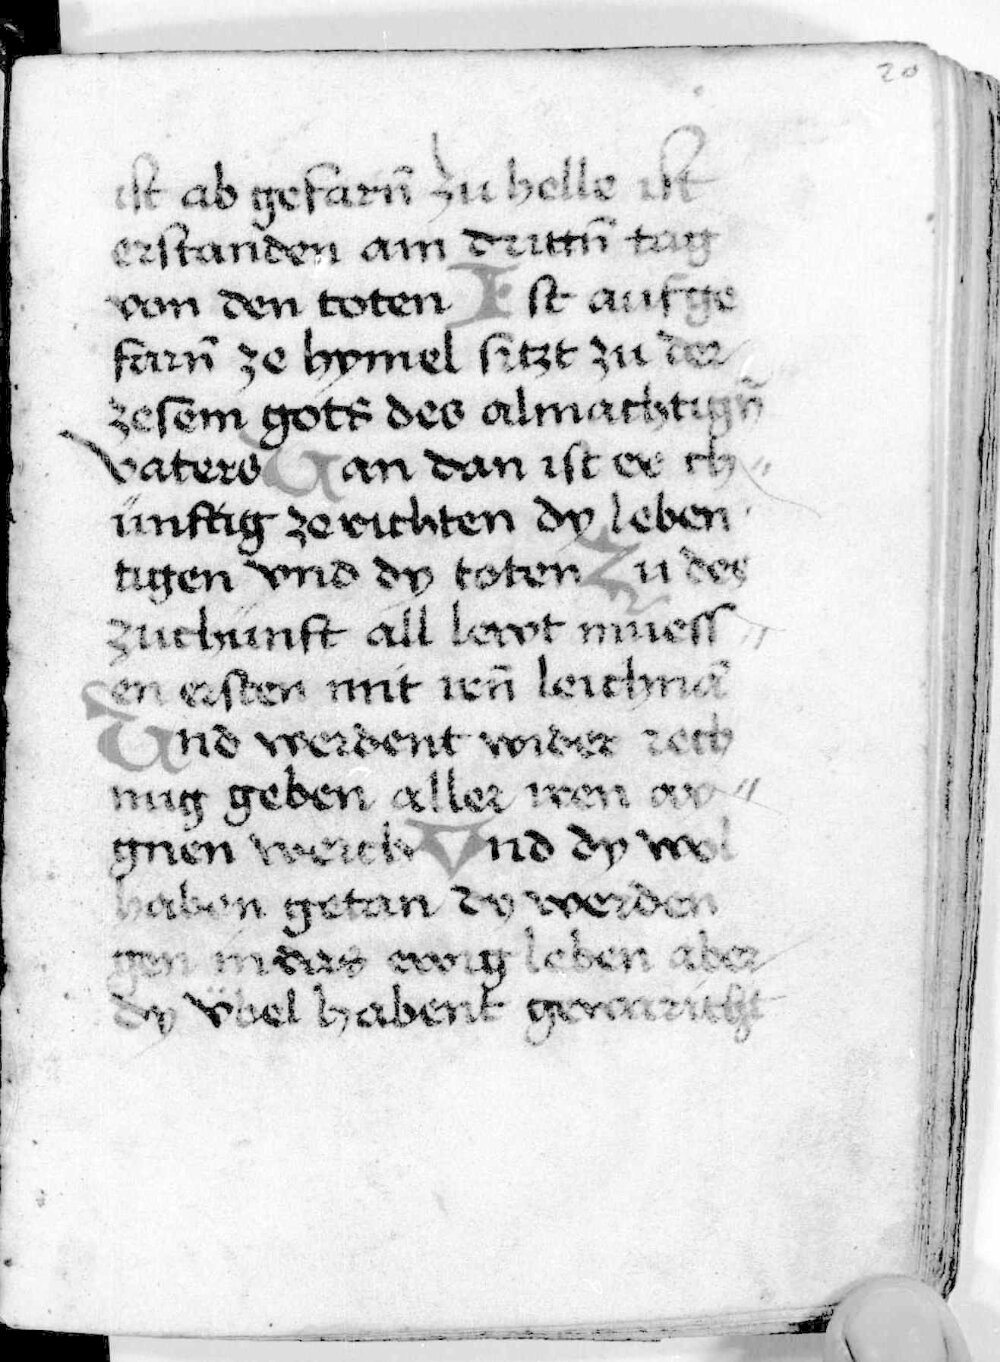 20
ist ab gefarn̄ zu helle ist
erstanden am drittn̄ tag
von den toten Ist aufge
farn̄ ze hymel sitzt zu der
zesem gots des almachtign̄
vaters Uan dan ist er ch〃
ünftig ze richten dy leben
tigen vnd dy toten Zu des
zuchünft all lewt muess〃
en ersten mit irn̄ leichnā
Und werdent wider rech
nug geben aller iren ay〃
gnen werch Vnd dy wol
haben getan dy werden
gen in das ewig leben aber
dy vbel habent gewaricht